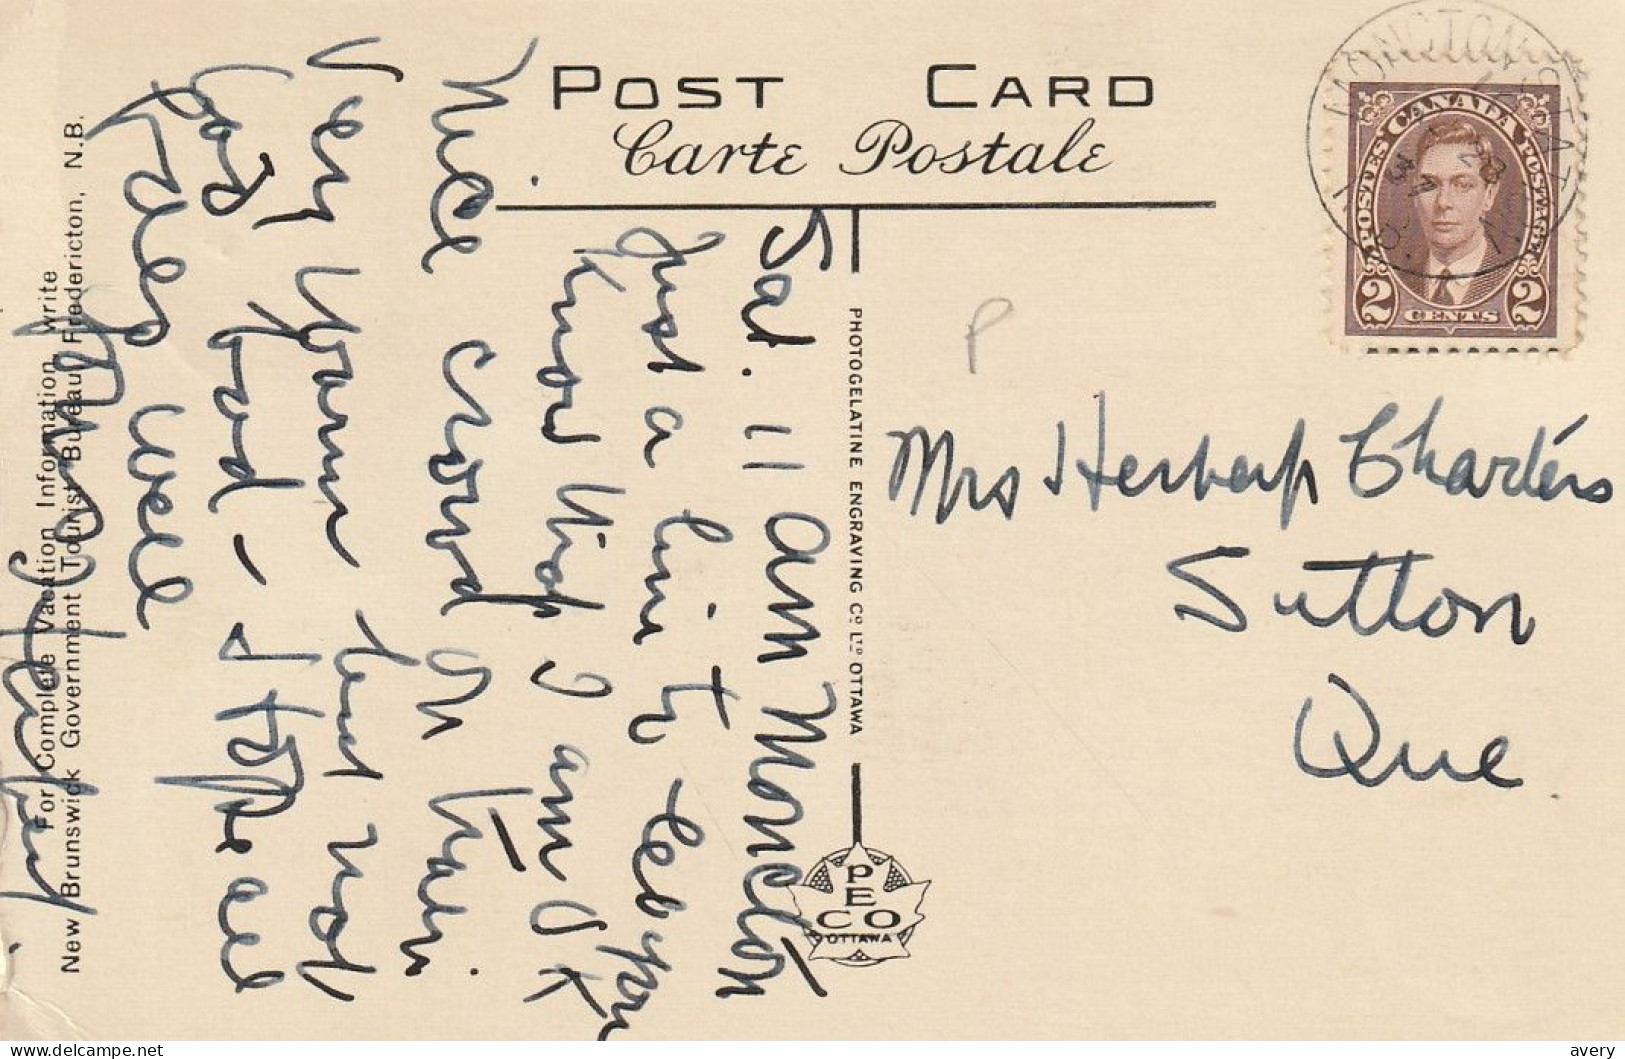 POST CARD
Carte Postale
MONCTON STA
POSTES CANADA POSTAGE
2 CENTS 2
P
Mrs Herbert Charters
Sutton
Que.
Sat. 11 am Moncton
Just a line to let you
know that I am O K
Nice crowd on train
Very warm but not
too bad - I Hope all
goes well
PHOTOGELATINE ENGRAVING CO. LTD. OTTAWA
PECO
OTTAWA
For Complete Vacation Information write
New Brunswick Government Tourist Bureau, Fredericton, N.B.
delcampe.net
avery